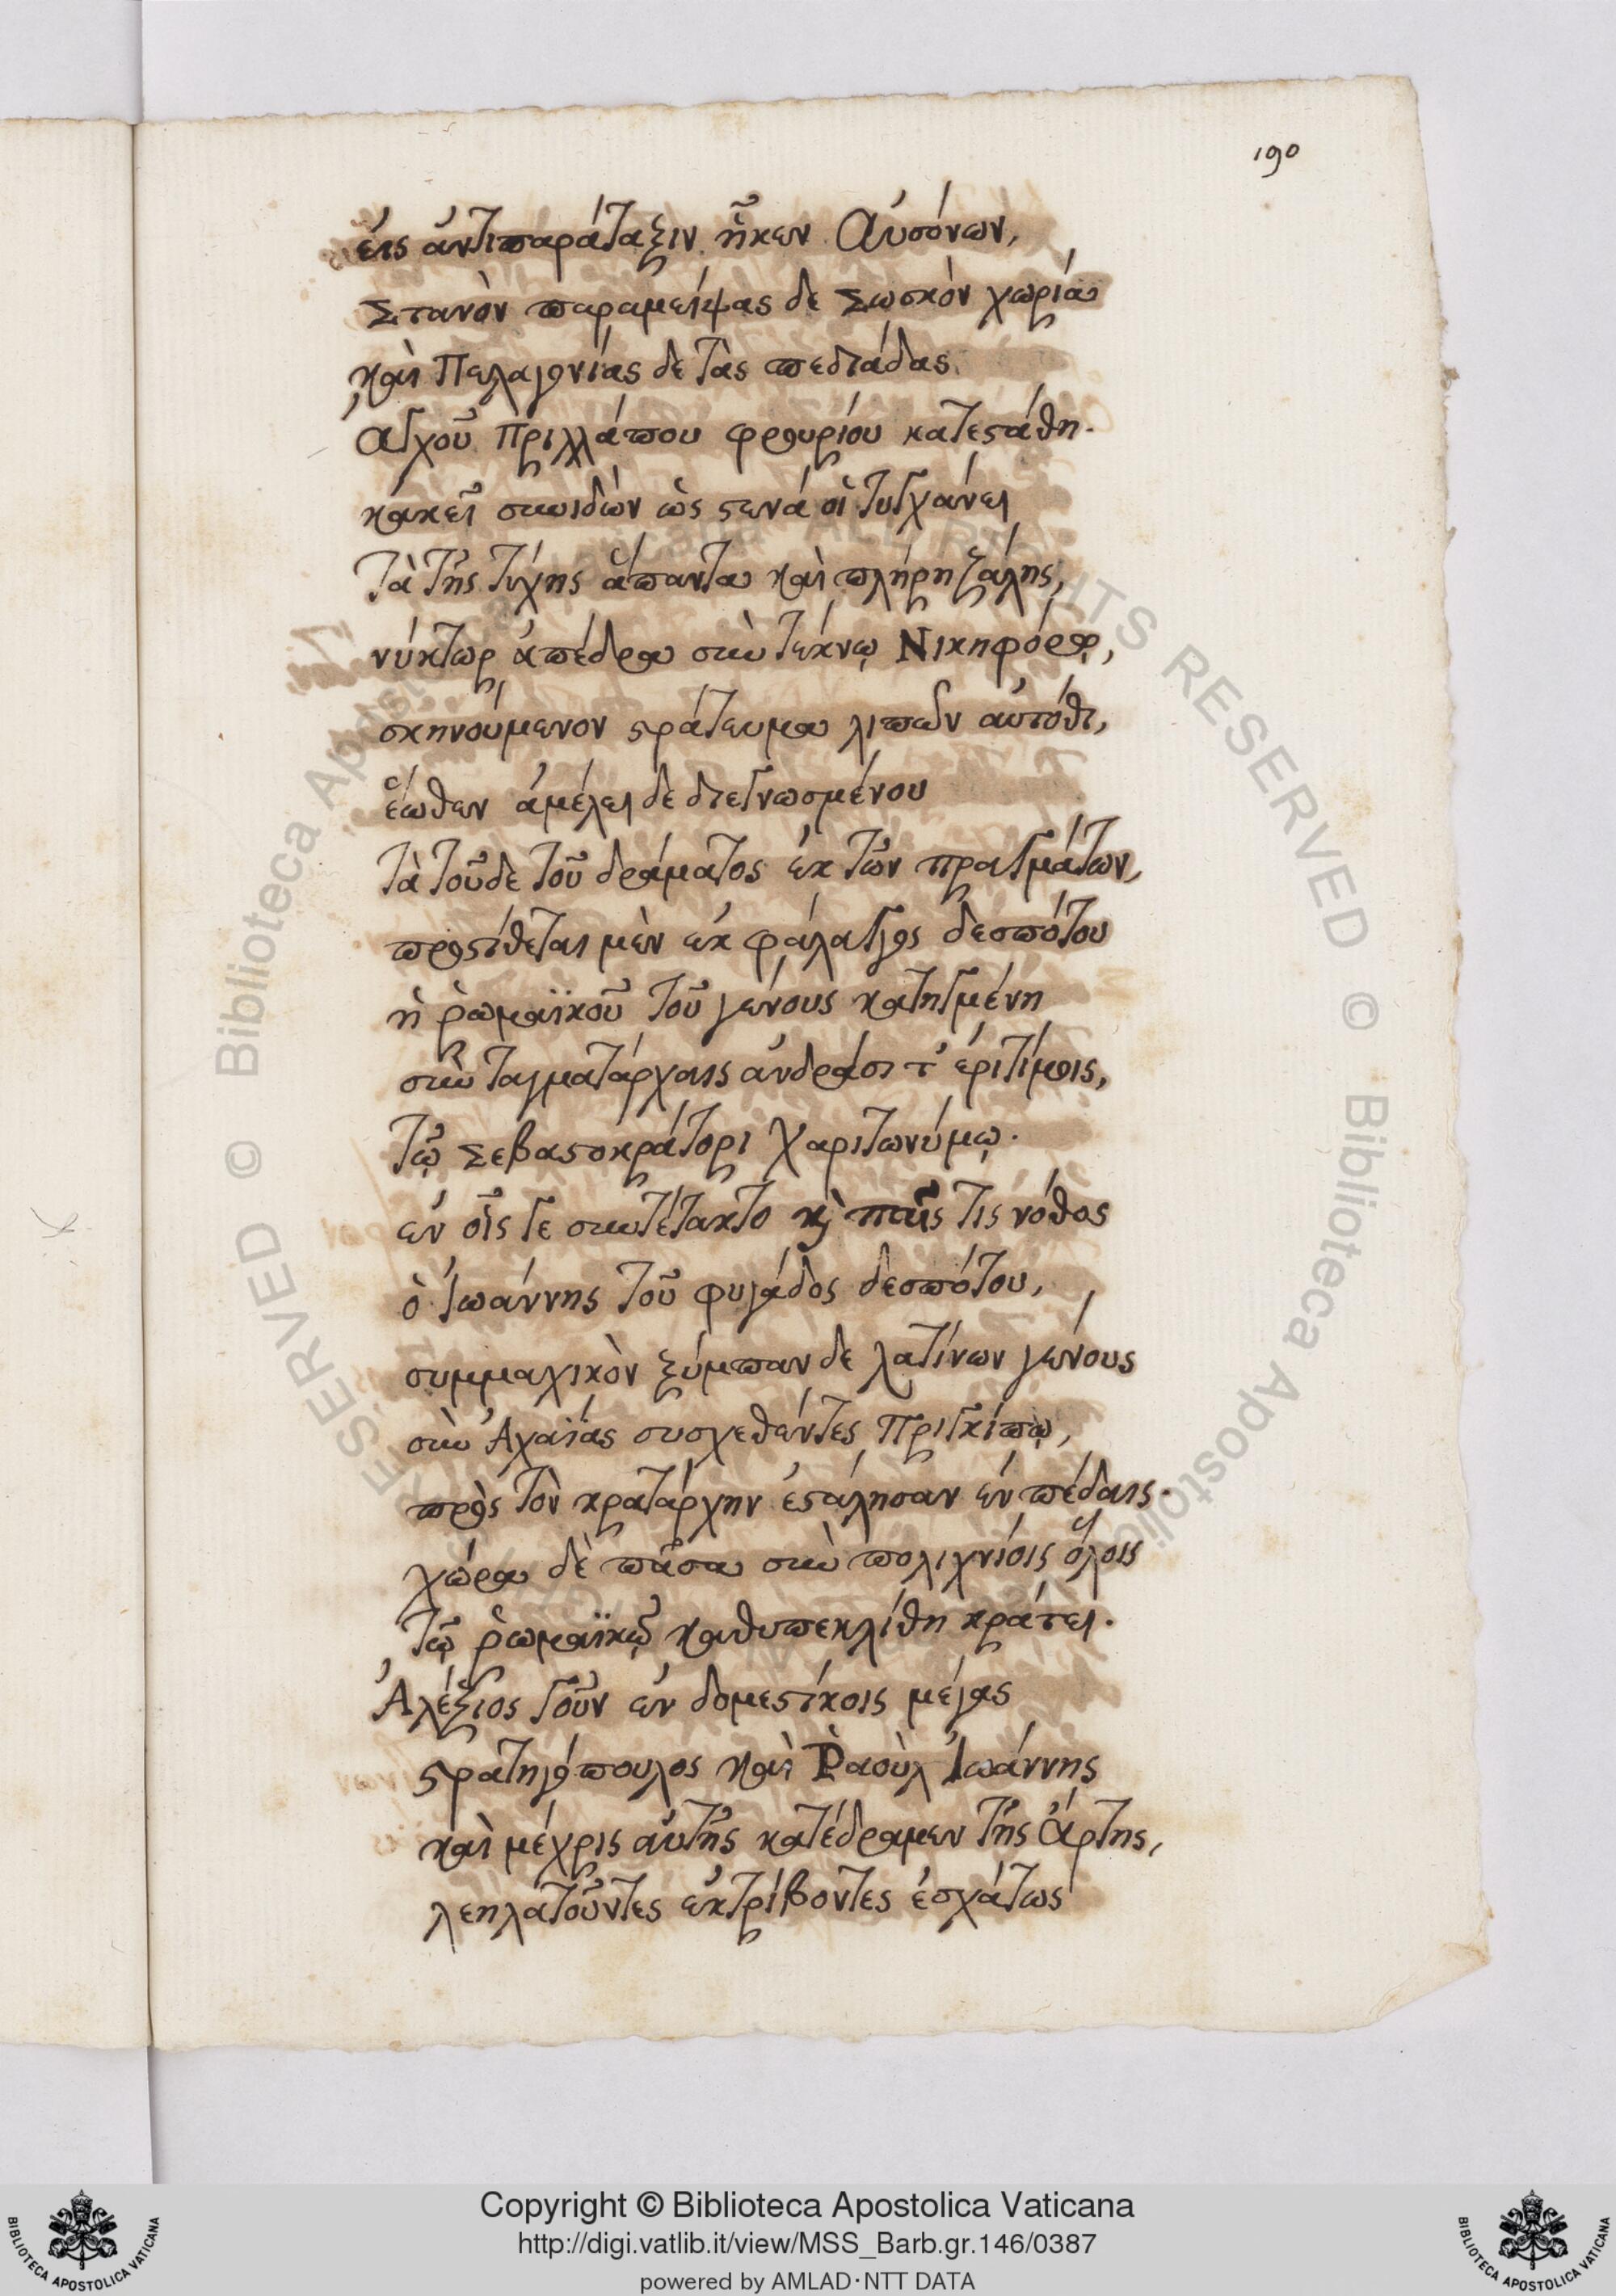 190
εἰς ἀντιπαράταξιν ἧκεν Αὐσόνων,
Στανὸν παραμείψας δε Σωσκὸν χωρία
καὶ Πελαγονίας δε τὰς πεδιάδας
ἀγχοῦ Πριλλάπου φρουρίου κατεστάθη.
κακεῖ συνιδὼν ὡς στενά οἱ τυγχάνει
τὰ τῆς τύχης ἅπαντα καὶ πλήρη ζάλης,
νύκτωρ ἀπέδρα σὺν τέκνῳ Νικηφόρῳ,
σκηνούμενον στράτευμα λιπὼν αὐτόθι,
ἕωθεν ἀμέλει δε διεγνωσμένου
τὰ τοῦδε τοῦ δράματος ἐκ τῶν πραγμάτων,
προστίθεται μὲν ἐκ φάλαγγος δεσπότου
ἡ ῥωμαϊκοῦ τοῦ γένους κατηγμένη
σὺν ταγματάρχαις ἀνδράσι τ' ἐριτίμοις,
τῷ Σεβαστοκράτορι Χαριτωνύμῳ.
ἐν οἷς γε συντέτακτο κ παῖς τις νόθος
ὁ Ἰωάννης τοῦ φυγάδος δεσπότου,
συμμαχικὸν ξύμπαν δε λατίνων γένους
σὺν Ἀχαΐας συσχεθέντες Πριγκίπῳ,
πρὸς τὸν κρατάρχην ἐστάλησαν ἐν πέδαις.
χώρα δὲ πᾶσα σὺν πολιχνίοις ὅλοις
τῷ ῥωμαϊκῷ καθυπεκλίθη κράτει.
Ἀλέξιος γοῦν ἐν δομεστίκοις μέγας
στρατηγόπουλος καὶ Ῥαοὺλ Ἰωάννης
καὶ μέχρις αὐτῆς κατέδραμεν τῆς Ἄρτης,
λεηλατοῦντες ἐκτρίβοντες ἐσχάτως
© Biblioteca Apostolica Vaticana ALL RIGHTS RESERVED
Copyright © Biblioteca Apostolica Vaticana
http://digi.vatlib.it/view/MSS_Barb.gr.146/0387
powered by AMLAD·NTT DATA
BIBLIOTECA APOSTOLICA VATICANA
BIBLIOTECA APOSTOLICA VATICANA